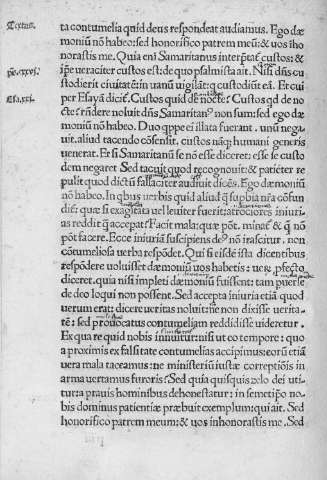 Textus.
ta contumelia quid deus respondeat audiamus. Ego dæ
moniũ nõ habeo: sed honorifico patrem meũ: & uos iho
norastis me. Quia eni Samaritanus interp̃tat̃ custos: &
ipe ueraciter custos est: de quo psalmista ait. Nisi dñs cu
stodierit ciuitatẽ: in uanũ uigilat: q custodiũt eã. Et cui
per Esayã dicit̃. Custos quid de nocte: Custos qd de no
cte: rñdere noluit dñs Samaritan9 non sum: sed ego dæ
moniũ nõ habeo. Duo qppe ei illata fuerant. unũ nega
uit. aliud tacendo cõsensit. custos naq; humani generis
uenerat. Et si Samaritanũ se nõ esse diceret: esse se custo
dem negaret Sed tacuit quod recognouit: & patiẽter re
pulit quod dictũ fallaciter audiuit dicẽs. Ego dæmoniũ
nõ habeo. In qbus uerbis quid aliud q̃ supbia nr̃a cõfun
dit̃: quæ si exagitata uel leuiter fuerit: atrociores iniuri
as reddit q̃ acceperat̃ Facit mala: quæ põt. minat̃ & q̃ nõ
põt facere. Ecce iniuriã suscipiens de9 nõ irascitur. non
cõtumeliosa uerba respõdet. Qui si eisdẽ ista dicentibus
respõdere uoluisset dæmoniũ uos habetis: uer̃. pfecto
diceret. quia nisi impleti dæmoniũ fuissent: tam puerse
de deo loqui non possent. Sed accepta iniuria etiã quod
uerum erat: dicere ueritas noluit: ne non dixisse uerita-
tẽ: sed prouocatus contumeliam reddidisse uideretur.
Ex qua re quid nobis innuitur: nisi ut eo tempore: quo
a proximis ex falsitate contumelias accipimus: eorũ etiã
uera mala taceamus: ne ministeriũ iustæ correptiõis in
arma uertamus furoris? Sed quia quisquis zelo dei uti
tur: a prauis hominibus dehonestatur: in semetipõ no-
bis dominus patientiæ præbuit exemplum: qui ait. Sed
honorifico patrem meum: & uos inhonorastis me. Sed